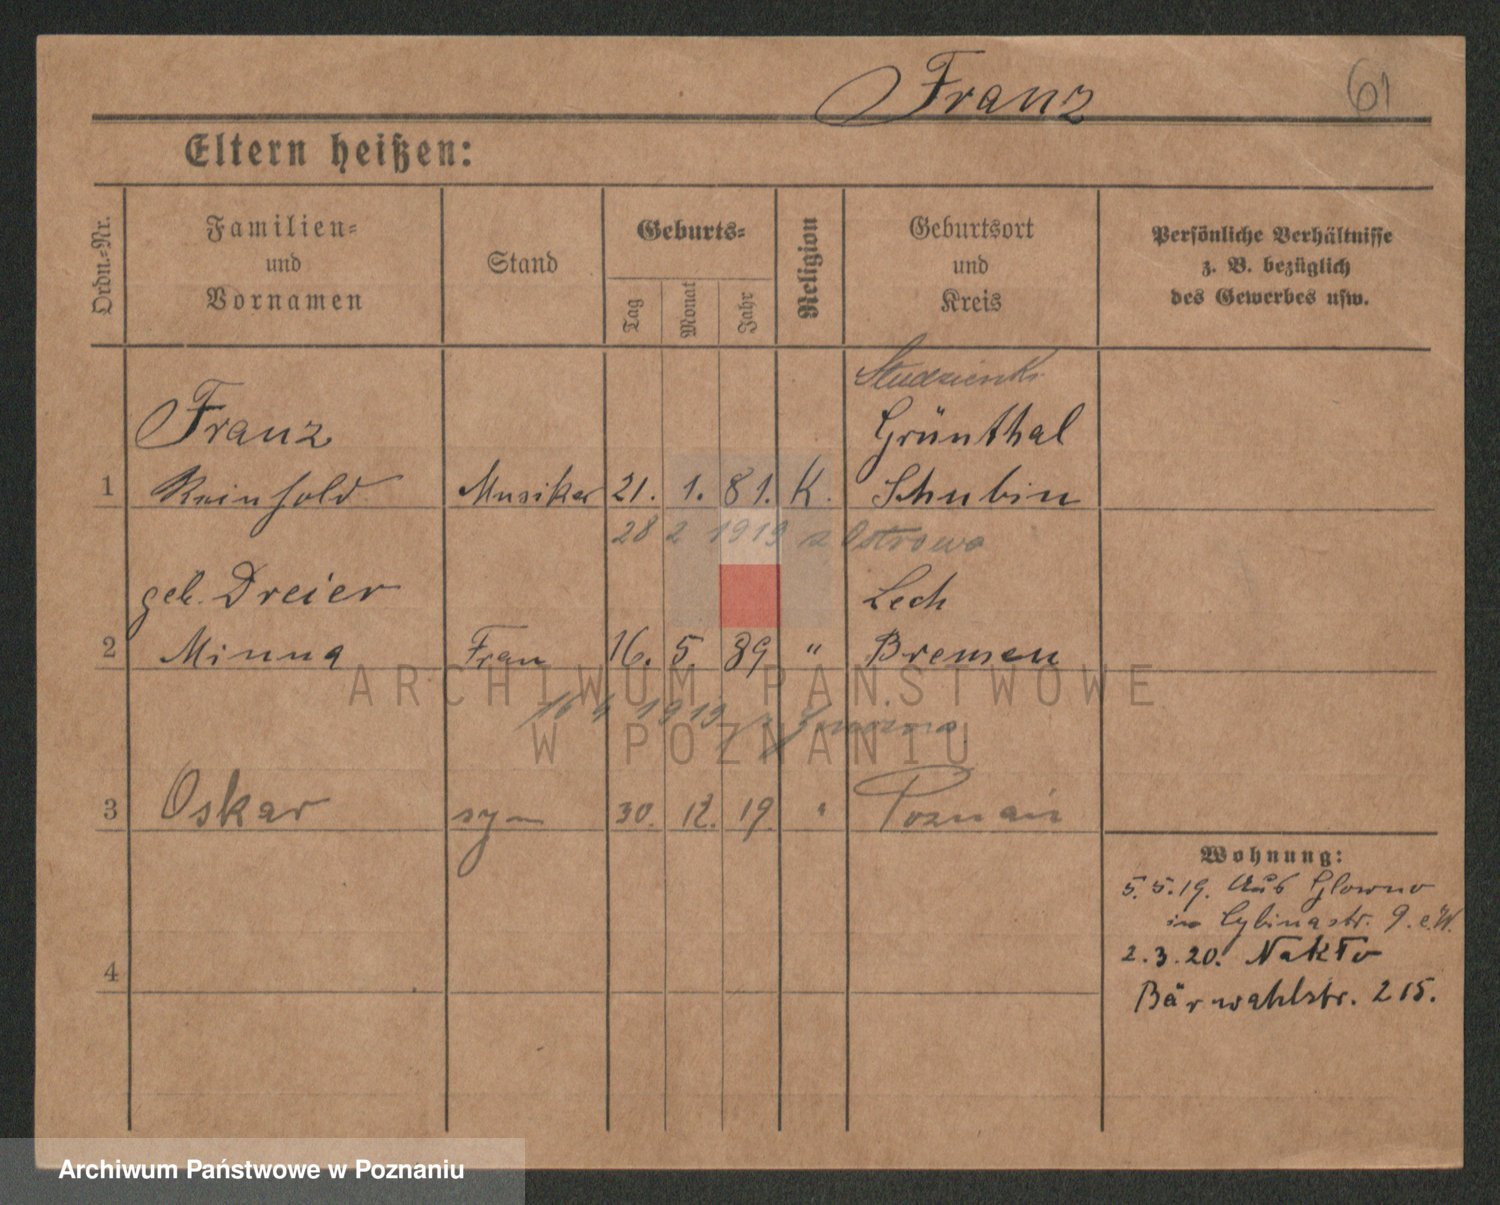 Franz
61
Eltern heißen:
Ordn.-Nr.
Familien-
und
Vornamen
Stand
Geburts-
Tag
Monat
Jahr
Religion
Geburtsort
und
Kreis
Persönliche Verhältnisse
z. B. bezüglich
des Gewerbes usw.
Studzienki
Franz Grünthal
1 Reinhold Musiker 21. 1. 81. K. Schubin
28 2 1919 z Ostrowo
geb. Dreier Lech
2 Minna Frau 16. 5 89 " Bremen
16 4 1919 z
3 Oskar syn 30. 12. 19. " Poznań
Wohnung:
5.5.19. Aus Glowno
in Cybinastr. 9.
2.3.20. Nakło
4
Bärwahlstr. 215.
ARCHIWUM PAŃSTWOWE
W POZNANIU
Archiwum Państwowe w Poznaniu